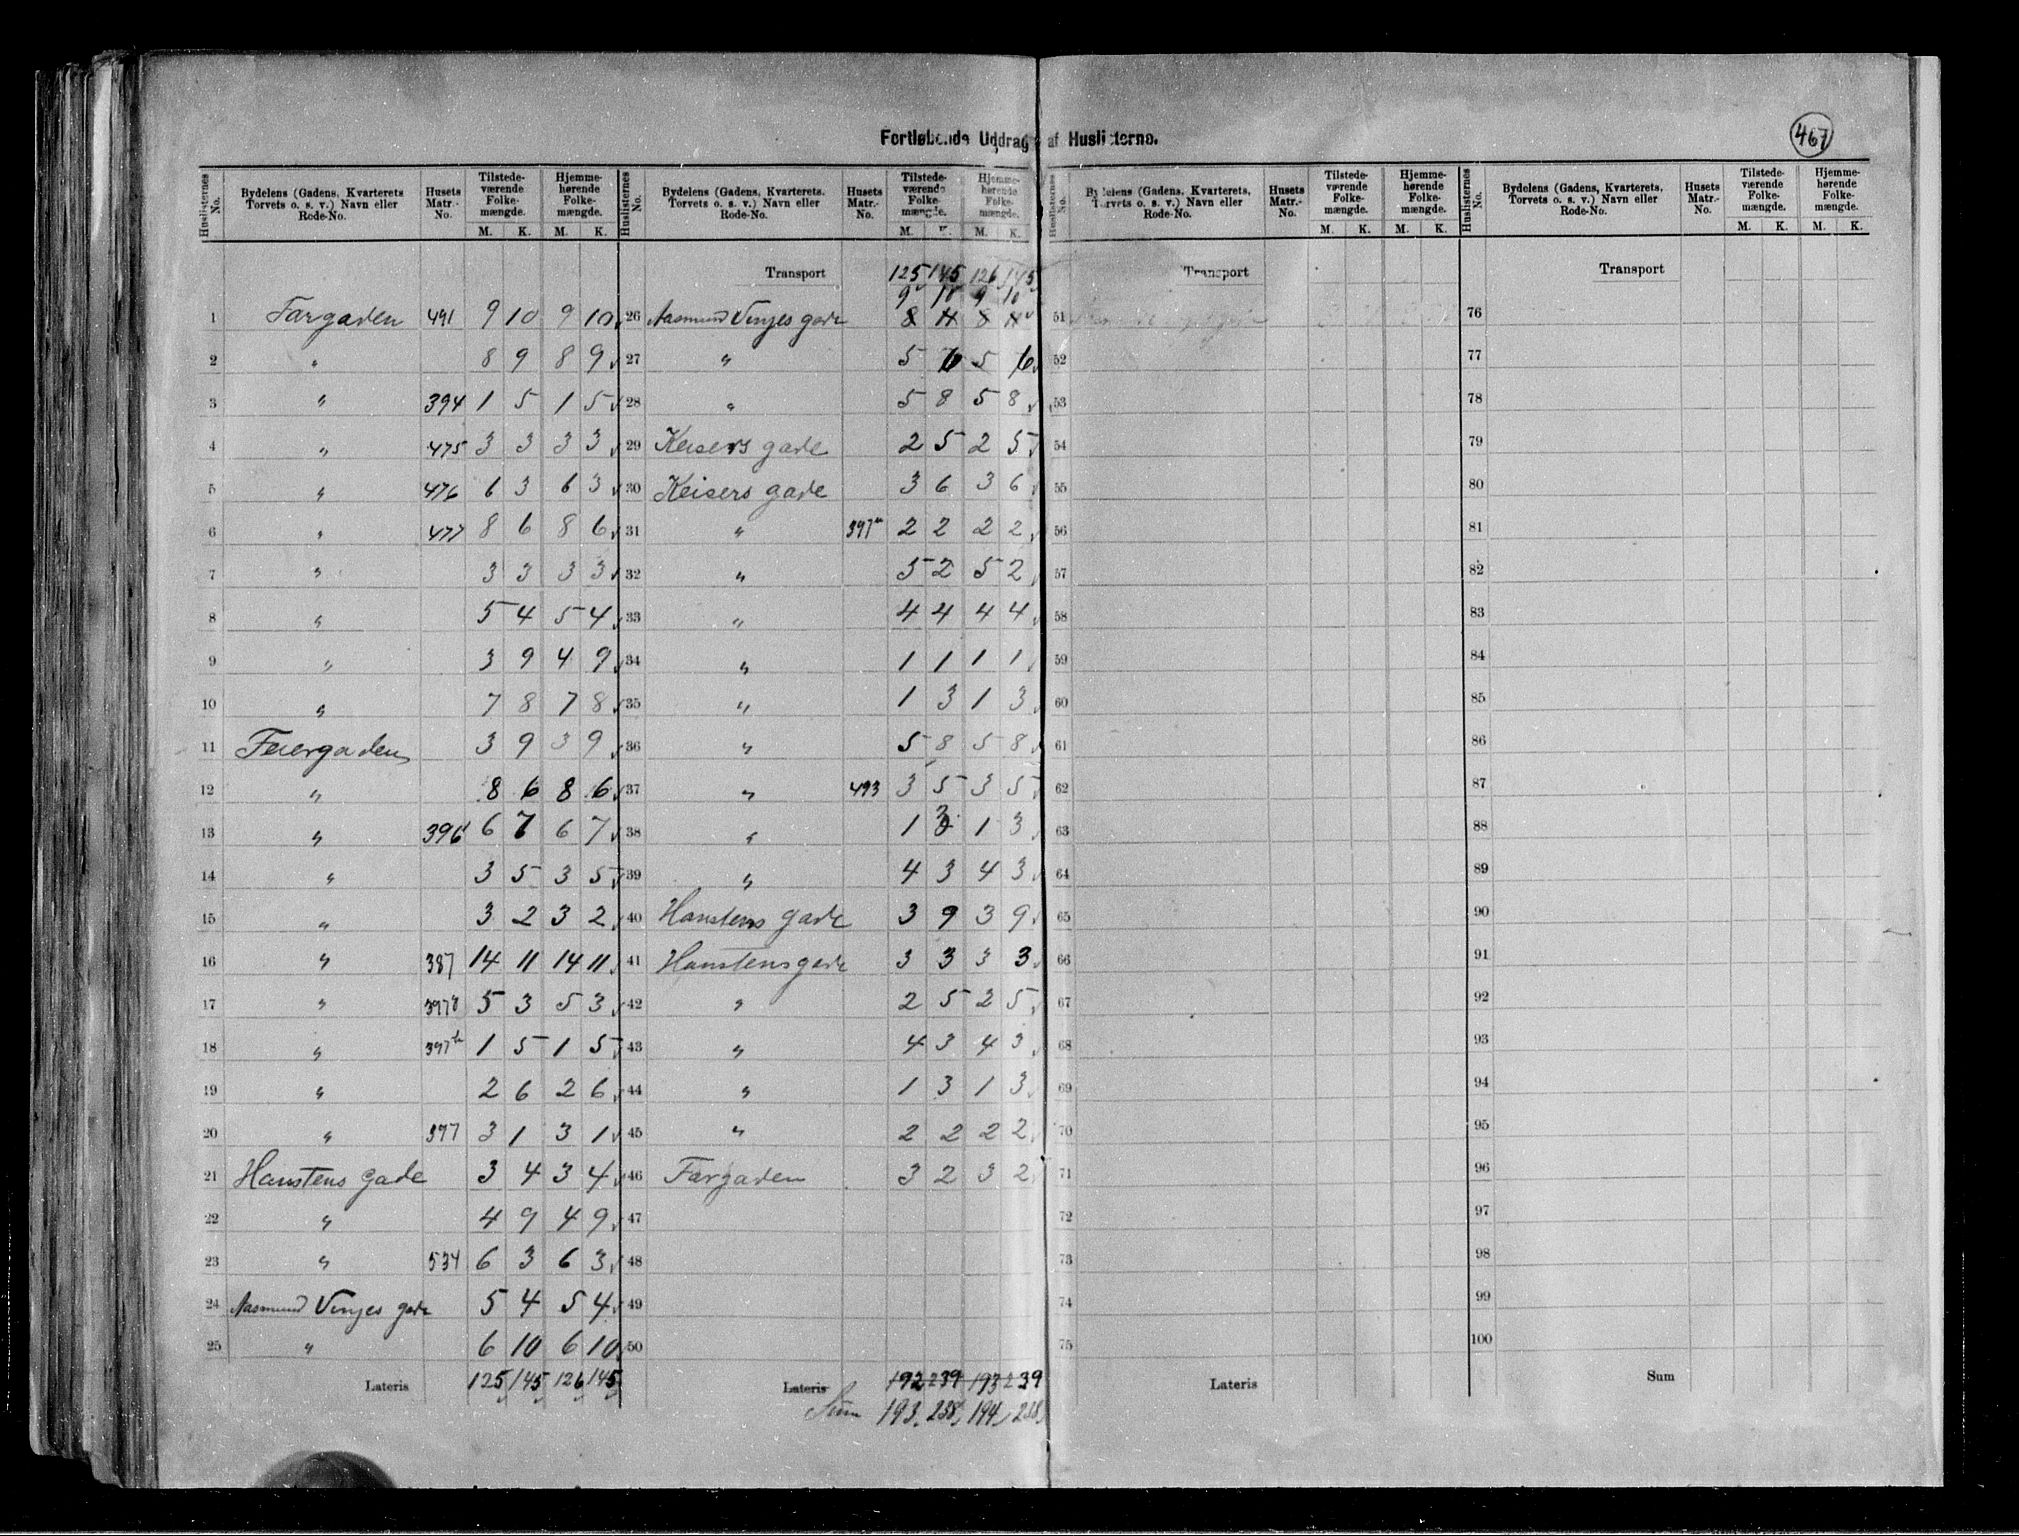 467
Fortløbende Uddrag af Huslisterne.
Huslisternes No. Bydelens (Gadens, Kvarterets Torvets o. s. v.) Navn eller Rode-No. Husets Matr.-No. Tilstedeværende Folkemængde. M. K. Hjemmehørende Folkemængde. M. K.
1 Færgaden 491 9 10 9 10
2 " 8 9 8 9
3 " 394 1 5 1 5
4 " 475 3 3 3 3
5 " 476 6 3 6 3
6 " 477 8 6 8 6
7 " 3 3 3 3
8 " 5 4 5 4
9 " 3 9 4 9
10 " 7 8 7 8
11 Feiergaden 3 9 3 9
12 " 8 6 8 6
13 " 396 6 7 6 7
14 " 3 5 3 5
15 " 3 2 3 2
16 " 387 14 11 14 11
17 " 5 3 5 3
18 " 1 5 1 5
19 " 2 6 2 6
20 " 397 3 1 3 1
21 Hanstens gade 3 4 3 4
22 " 4 9 4 9
23 " 534 6 3 6 3
24 Aasmund Vinjes gade 5 4 5 4
25 " 6 10 6 10
Lateris 125 145 126 145
Huslisternes No. Bydelens (Gadens, Kvarterets, Torvets o. s. v.) Navn eller Rode-No. Husets Matr.-No. Tilstedeværende Folkemængde. M. K. Hjemmehørende Folkemængde. M. K.
Transport 125 145 126 145
9 10 9 10
26 Aasmund Vinjes gade 8 11 8 11
27 " 5 6 5 6
28 " 5 8 5 8
29 Keisers gade 2 5 2 5
30 Keisers gade 3 6 3 6
31 " 397 2 2 2 2
32 " 5 2 5 2
33 " 4 4 4 4
34 " 1 1 1 1
35 " 1 3 1 3
36 " 5 8 5 8
37 " 493 3 5 3 5
38 " 1 3 1 3
39 " 4 3 4 3
40 Hanstens gade 3 9 3 9
41 Hanstens gade 3 3 3 3
42 " 2 5 2 5
43 " 4 3 4 3
44 " 1 3 1 3
45 " 2 2 2 2
46 Færgaden 3 2 3 2
47
48
49
50
Lateris 192 239 193 239
Sum 193 238 194 238
Huslisternes No. Bydelens (Gadens, Kvarterets, Torvets o. s. v.) Navn eller Rode-No. Husets Matr.-No. Tilstedeværende Folkemængde. M. K. Hjemmehørende Folkemængde. M. K.
Transport
51
52
53
54
55
56
57
58
59
60
61
62
63
64
65
66
67
68
69
70
71
72
73
74
75
Lateris
Huslisternes No. Bydelens (Gadens, Kvarterets, Torvets o. s. v.) Navn eller Rode-No. Husets Matr.-No. Tilstedeværende Folkemængde. M. K. Hjemmehørende Folkemængde. M. K.
Transport
76
77
78
79
80
81
82
83
84
85
86
87
88
89
90
91
92
93
94
95
96
97
98
99
100
Sum